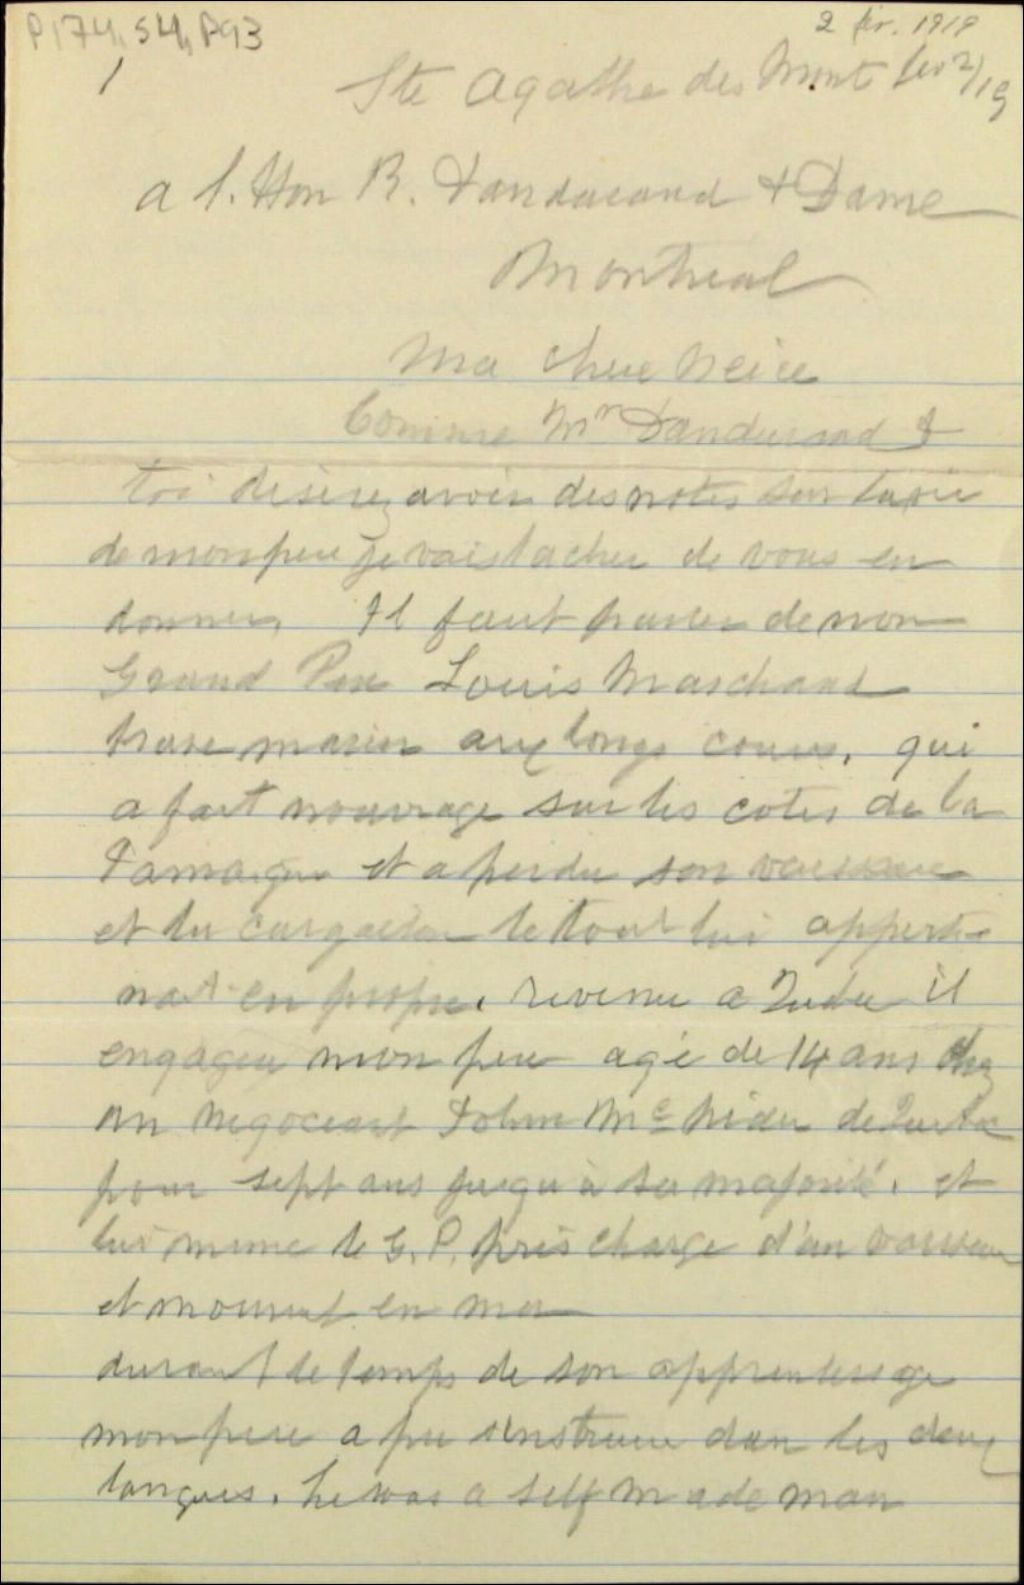 P174, S4, P93
2 fév. 1919
1
Ste Agathe des Mont fev 2/19
a l. Hon R. Dandurand & Dame
Montreal
Ma chere Neice
Comme Mr Dandurand &
toi desirez avoir des notes sur la vie
de mon pere je vais tacher de vous en
donner, Il faut parler de mon
Grand Pere Louis Marchand
brave marin aux longs cours, qui
a fait nauvrage sur les cotes de la
Jamaique et a perdu son vaisseau
et la cargaison le tout lui apparte
nait en propre. revenu a Quebec il
engagea mon pere agé de 14 ans chez
un negociant John Mc Nider de Quebec
pour sept ans jusqu'à sa majorité. et
lui meme le G. P. pris charge d'un vaisseau
et mourut en mer
durant le temps de son apprentissage
mon pere a pu s'instruire dans les deux
langues. he was a self made man